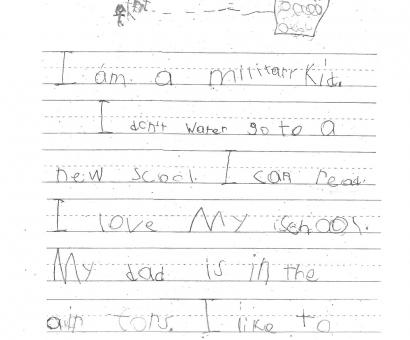 I am a militarr Kid.
I don't water go to a
new scool. I can read.
I love My school.
My dad is in the
air fors. I like to